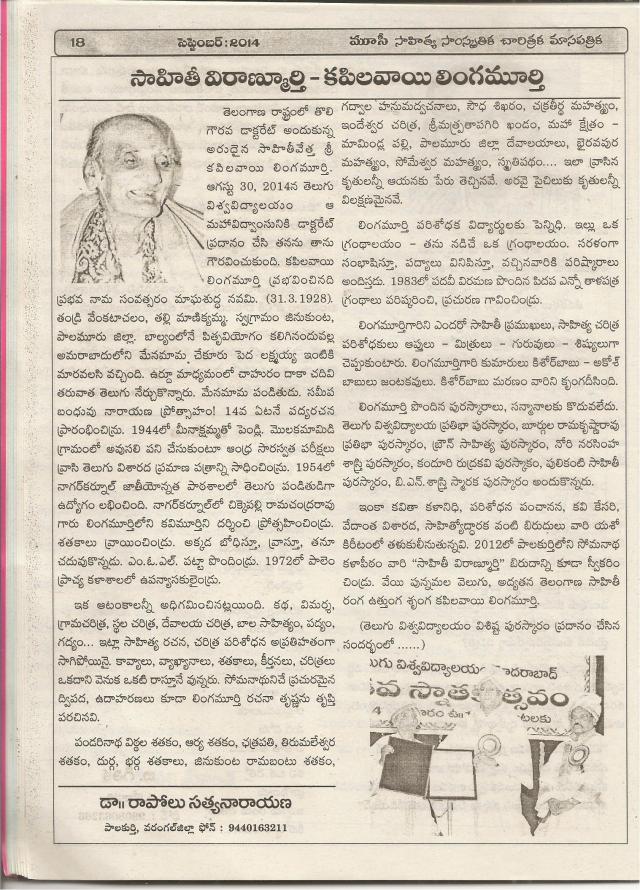 18
సెప్టెంబర్: 2014
మూసీ సాహిత్య సాంస్కృతిక చారిత్రక మాసపత్రిక
సాహితీ విరాణ్మూర్తి - కపిలవాయి లింగమూర్తి
తెలంగాణ రాష్ట్రంలో తొలి
గౌరవ డాక్టరేట్ అందుకున్న
అరుదైన సాహితీవేత్త శ్రీ
కపిలవాయి లింగమూర్తి.
ఆగస్టు 30, 2014న తెలుగు
విశ్వవిద్యాలయం ఆ
మహావిద్వాంసునికి డాక్టరేట్
ప్రదానం చేసి తనను తాను
గౌరవించుకుంది. కపిలవాయి
లింగమూర్తి ప్రభవించినది
ప్రభవ నామ సంవత్సరం మాఘశుద్ధ నవమి. (31.3.1928).
తండ్రి వేంకటాచలం, తల్లి మాణిక్యమ్మ. స్వగ్రామం జినుకుంట,
పాలమూరు జిల్లా. బాల్యంలోనే పితృవియోగం కలిగినందువల్ల
అమరాబాదులోని మేనమామ చేకూరు పెద లక్ష్మయ్య ఇంటికి
మారవలసి వచ్చింది. ఉర్దూ మాధ్యమంలో చాహరుం దాకా చదివి
తరువాత తెలుగు నేర్చుకొన్నారు. మేనమామ పండితుడు. సమీప
బంధువు నారాయణ ప్రోత్సాహం! 14వ ఏటనే పద్యరచన
ప్రారంభించిన్రు. 1944లో మీనాక్షమ్మతో పెండ్లి. మొలకమామిడి
గ్రామంలో అవుసలి పని చేసుకుంటూ ఆంధ్ర సారస్వత పరీక్షలు
వ్రాసి తెలుగు విశారద ప్రమాణ పత్రాన్ని సాధించిన్రు. 1954లో
నాగర్‌కర్నూల్ జాతీయోన్నత పాఠశాలలో తెలుగు పండితుడిగా
ఉద్యోగం లభించింది. నాగర్‌కర్నూల్‌లో చిక్కెపల్లి రామచంద్రరావు
గారు లింగమూర్తిలోని కవిమూర్తిని దర్శించి ప్రోత్సహించిండ్రు.
శతకాలు వ్రాయించిండ్రు. అక్కడ బోధిస్తూ, వ్రాస్తూ, తనూ
చదువుకొన్నడు. ఎం.ఓ.ఎల్. పట్టా పొందిండ్రు. 1972లో పాలెం
ప్రాచ్య కళాశాలలో ఉపన్యాసకులైండ్రు.
ఇక ఆటంకాలన్నీ అధిగమించినట్లయింది. కథ, విమర్శ,
గ్రామచరిత్ర, స్థల చరిత్ర, దేవాలయ చరిత్ర, బాల సాహిత్యం, పద్యం,
గద్యం... ఇట్లా సాహిత్య రచన, చరిత్ర పరిశోధన అప్రతిహతంగా
సాగిపోయినై. కావ్యాలు, వ్యాఖ్యానాలు, శతకాలు, కీర్తనలు, చరిత్రలు
ఒకదాని వెనుక ఒకటి రాస్తూనే వున్నరు. సోమనాథునిచే ప్రచురమైన
ద్విపద, ఉదాహరణలు కూడా లింగమూర్తి రచనా తృష్ణను తృప్తి
పరచినవి.
పండరినాథ విఠ్ఠల శతకం, ఆర్య శతకం, ఛత్రపతి, తిరుమలేశ్వర
శతకం, దుర్గ, భర్గ శతకాలు, జినుకుంట రామబంటు శతకం,
డా॥ రాపోలు సత్యనారాయణ
పాలకుర్తి, వరంగల్‌జిల్లా ఫోన్ : 9440163211
గద్వాల హనుమద్వచనాలు, సౌధ శిఖరం, చక్రతీర్థ మహత్మ్యం,
ఇందేశ్వర చరిత్ర, శ్రీమత్ప్రతాపగిరి ఖండం, మహా క్షేత్రం -
మామిండ్ల పల్లి, పాలమూరు జిల్లా దేవాలయాలు, భైరవపుర
మహత్మ్యం, సోమేశ్వర మహత్మ్యం, స్మృతిపథం.... ఇలా వ్రాసిన
కృతులన్నీ ఆయనకు పేరు తెచ్చినవే. అరవై పైచిలుకు కృతులన్నీ
విలక్షణమైనవే.
లింగమూర్తి పరిశోధక విద్యార్థులకు పెన్నిధి. ఇల్లు ఒక
గ్రంథాలయం - తను నడిచే ఒక గ్రంథాలయం. సరళంగా
సంభాషిస్తూ, పద్యాలు వినిపిస్తూ, వచ్చినవారికి పరిష్కారాలు
అందిస్తడు. 1983లో పదవీ విరమణ పొందిన పిదప ఎన్నో తాళపత్ర
గ్రంథాలు పరిష్కరించి, ప్రచురణ గావించిండ్రు.
లింగమూర్తిగారిని ఎందరో సాహితీ ప్రముఖులు, సాహిత్య చరిత్ర
పరిశోధకులు ఆప్తులు - మిత్రులు - గురువులు - శిష్యులుగా
చెప్పుకుంటారు. లింగమూర్తిగారి కుమారులు కిశోర్‌బాబు - అకోశ్
బాబులు జంటకవులు. కిశోర్‌బాబు మరణం వారిని కృంగదీసింది.
లింగమూర్తి పొందిన పురస్కారాలు, సన్మానాలకు కొదువలేదు.
తెలుగు విశ్వవిద్యాలయ ప్రతిభా పురస్కారం, బూర్గుల రామకృష్ణారావు
ప్రతిభా పురస్కారం, బ్రౌన్ సాహిత్య పురస్కారం, నోరి నరసింహ
శాస్త్రి పురస్కారం, కందూరి రుద్రకవి పురస్కాకం, పులికంటి సాహితీ
పురస్కారం, బి.ఎన్.శాస్త్రి స్మారక పురస్కారం అందుకొన్నరు.
ఇంకా కవితా కళానిధి, పరిశోధన పంచానన, కవి కేసరి,
వేదాంత విశారద, సాహిత్యోద్ధారక వంటి బిరుదులు వారి యశో
కిరీటంలో తళుకులీనుతున్నవి. 2012లో పాలకుర్తిలోని సోమనాథ
కళాపీఠం వారి "సాహితీ విరాణ్మూర్తి" బిరుదాన్ని కూడా స్వీకరిం
చిండ్రు. వేయి పున్నమల వెలుగు, అద్యతన తెలంగాణ సాహితీ
రంగ ఉత్తుంగ శృంగ కపిలవాయి లింగమూర్తి.
(తెలుగు విశ్వవిద్యాలయం విశిష్ట పురస్కారం ప్రదానం చేసిన
సందర్భంలో ......)
లుగు విశ్వవిద్యాలయ
దరాబాద్
వ స్నాత
త్సవం